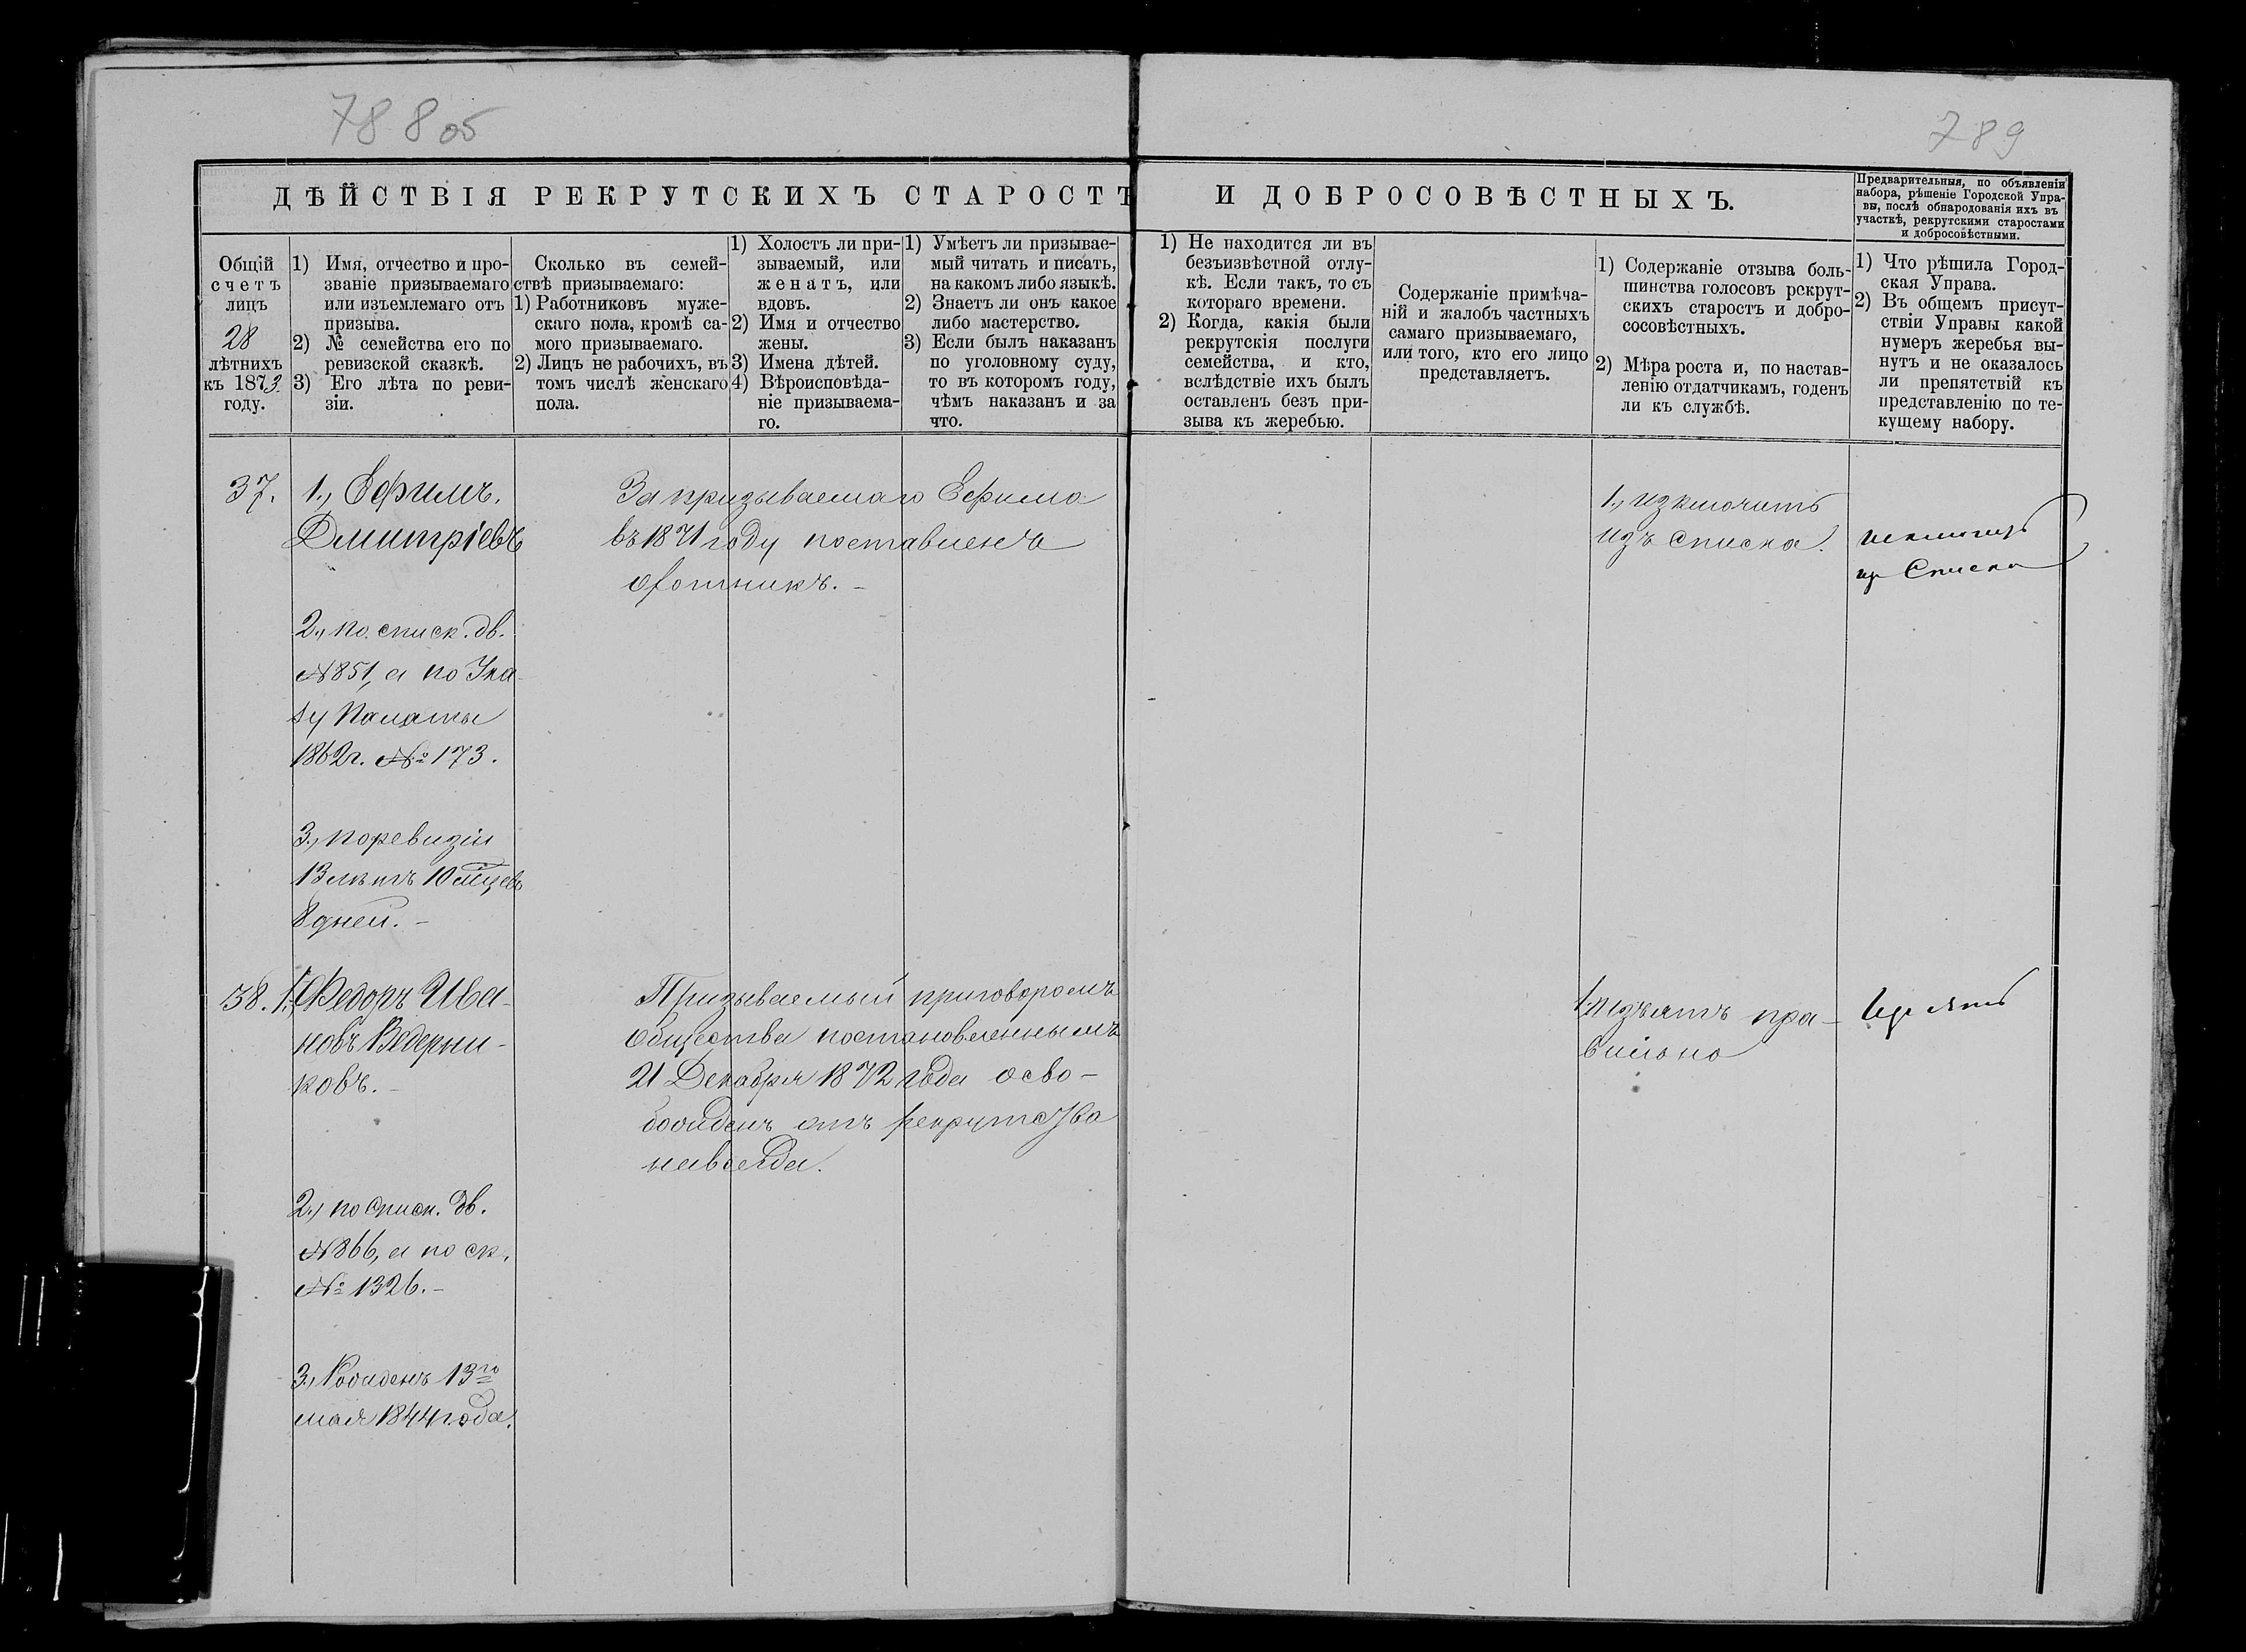 788 об
789
ДѢЙСТВІЯ РЕКРУТСКИХЪ СТАРОСТЪ И ДОБРОСОВѢСТНЫХЪ.
Предварительныя, по объявленіи
набора, рѣшеніе Городской Упра-
вы, послѣ обнародованія ихъ въ
участкѣ, рекрутскими старостами
и добросовѣстными.
Общій
счетъ
лицъ
28
лѣтнихъ
къ 1873
году.
1) Имя, отчество и про-
званіе призываемаго
или изъемлемаго отъ
призыва.
2) № семейства его по
ревизской сказкѣ.
3) Его лѣта по реви-
зіи.
Сколько въ семей-
ствѣ призываемаго:
1) Работниковъ муже-
скаго пола, кромѣ са-
мого призываемаго.
2) Лицъ не рабочихъ, въ
томъ числѣ женскаго
пола.
1) Холостъ ли при-
зываемый, или
женатъ, или
вдовъ.
2) Имя и отчество
жены.
3) Имена дѣтей.
4) Вѣроисповѣда-
ніе призываема-
го.
1) Умѣетъ ли призывае-
мый читать и писать,
на какомъ либо языкѣ.
2) Знаетъ ли онъ какое
либо мастерство.
3) Если былъ наказанъ
по уголовному суду,
то въ которомъ году,
чѣмъ наказанъ и за
что.
1) Не находится ли въ
безъизвѣстной отлу-
кѣ. Если такъ, то съ
котораго времени.
2) Когда, какія были
рекрутскія послуги
семейства, и кто,
вслѣдствіе ихъ былъ
оставленъ безъ при-
зыва къ жеребью.
Содержаніе примѣча-
ній и жалобъ частныхъ
самаго призываемаго,
или того, кто его лицо
представляетъ.
1) Содержаніе отзыва боль-
шинства голосовъ рекрут-
скихъ старостъ и добро-
сосовѣстныхъ.
2) Мѣра роста и, по настав-
ленію отдатчикамъ, годенъ
ли къ службѣ.
1) Что рѣшила Город-
ская Управа.
2) Въ общемъ присут-
ствіи Управы какой
нумеръ жеребья вы-
нутъ и не оказалось
ли препятствій къ
представленію по те-
кущему набору.
37.
1., Ефимъ
Дмитріевъ
2., по списк. дв.
№ 851, а по Ука-
зу Палаты
1862 г. № 173.
3., по ревизіи
13 лѣтъ 10 мѣсяцевъ
8 дней. –
За призываемаго Ефима
въ 1871 году поставленъ
охотникъ. –
1., изключить
изъ списка.
исключить
из Списка
38.
1., Федоръ Ива-
новъ Ведерни-
ковъ. –
2., по списк. дв.
№ 866, а по ск.
№ 1326. –
3., Рожденъ 13го
мая 1844 года.
Призываемый приговоромъ
Общества постановленнымъ
21 Декабря 1872 года осво-
божденъ отъ рекрутства
навсегда.
1., изъятъ пра-
вильно
Изъять